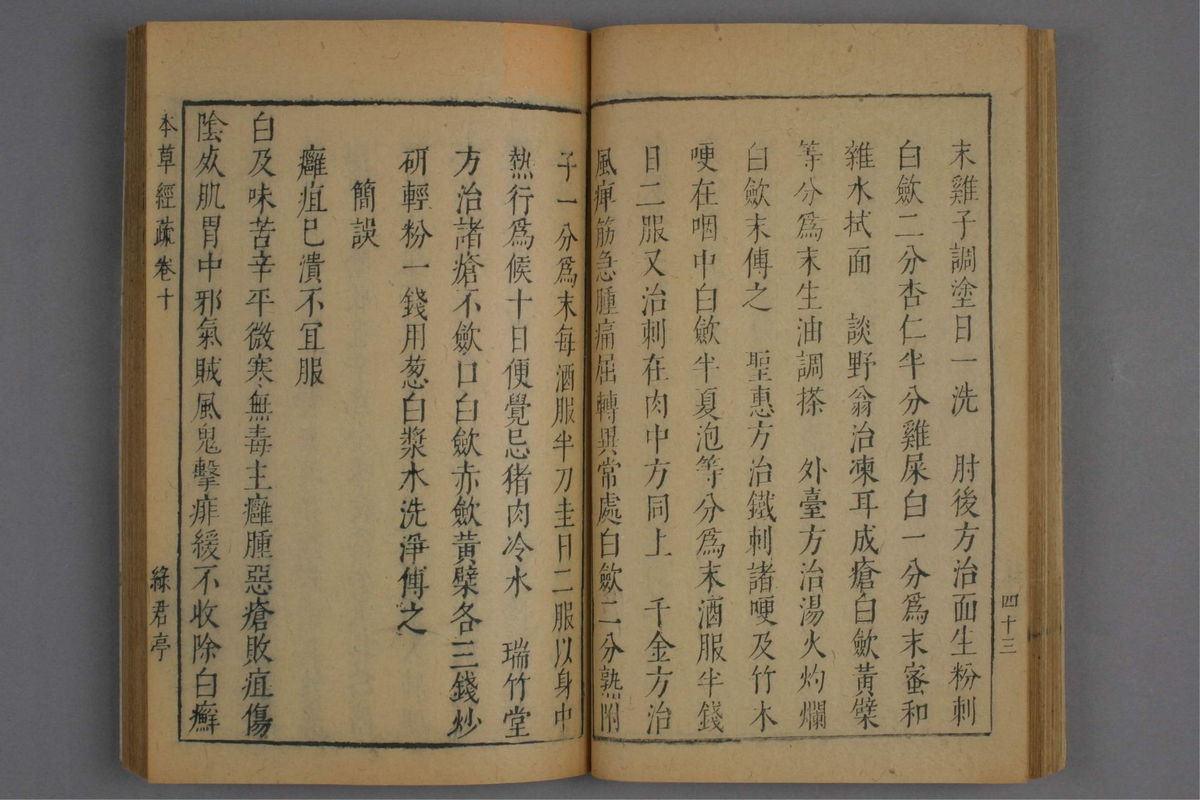 末雞子調塗日一洗　肘後方治面生粉刺
白歛二分杏仁半分雞屎白一分爲末蜜和
雞水拭面　談野翁治凍耳成瘡白歛黃檗
等分爲末生油調搽　外臺方治湯火灼爛
白歛末傅之　聖惠方治鐵刺諸哽及竹木
哽在咽中白歛半夏泡等分爲末酒服半錢
日二服又治刺在肉中方同上　千金方治
風痺筋急腫痛屈轉異常處白歛二分熟附
四十三
子一分爲末每酒服半刀圭日二服以身中
熱行爲候十日便覺忌猪肉冷水　瑞竹堂
方治諸瘡不歛口白歛赤歛黃檗各三錢炒
研輕粉一錢用葱白漿水洗淨傅之
簡誤
癰疽已潰不宜服
白及味苦辛平微寒無毒主癰腫惡瘡敗疽傷
陰死肌胃中邪氣賊風鬼擊痱緩不收除白癬
本草經疏卷十
綠君亭